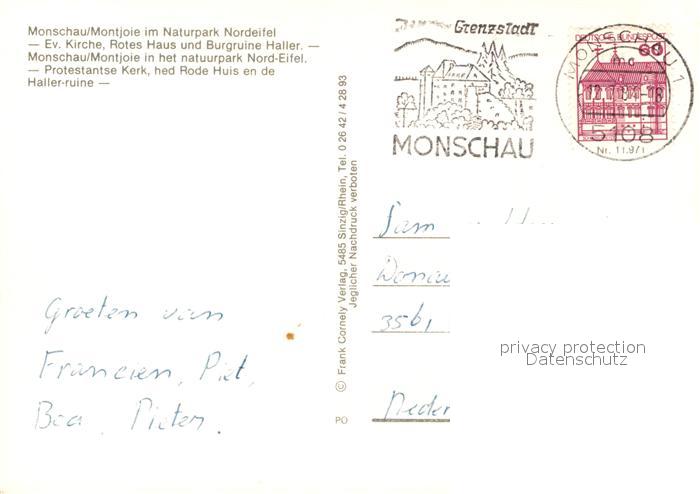 Monschau/Montjoie im Naturpark Nordeifel
— Ev. Kirche, Rotes Haus und Burgruine Haller. —
Monschau/Montjoie in het natuurpark Nord-Eifel.
— Protestantse Kerk, hed Rode Huis en de
Haller-ruine —
Grenzstadt
MONSCHAU
DEUTSCHE BUNDESPOST
60
MONSCHAU 1
5108
© Frank Cornely Verlag, 5485 Sinzig/Rhein, Tel. 0 26 42 / 4 28 93
Jeglicher Nachdruck verboten
PO
Fam
Donau
3561
Neder
Groeten van
Francien, Piet,
Bea, Pieter.
privacy protection
Datenschutz